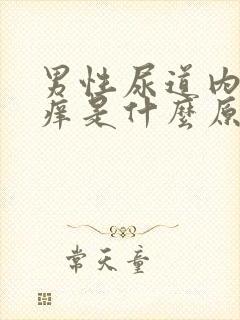 男性尿道内
痒是什麼原
常天童